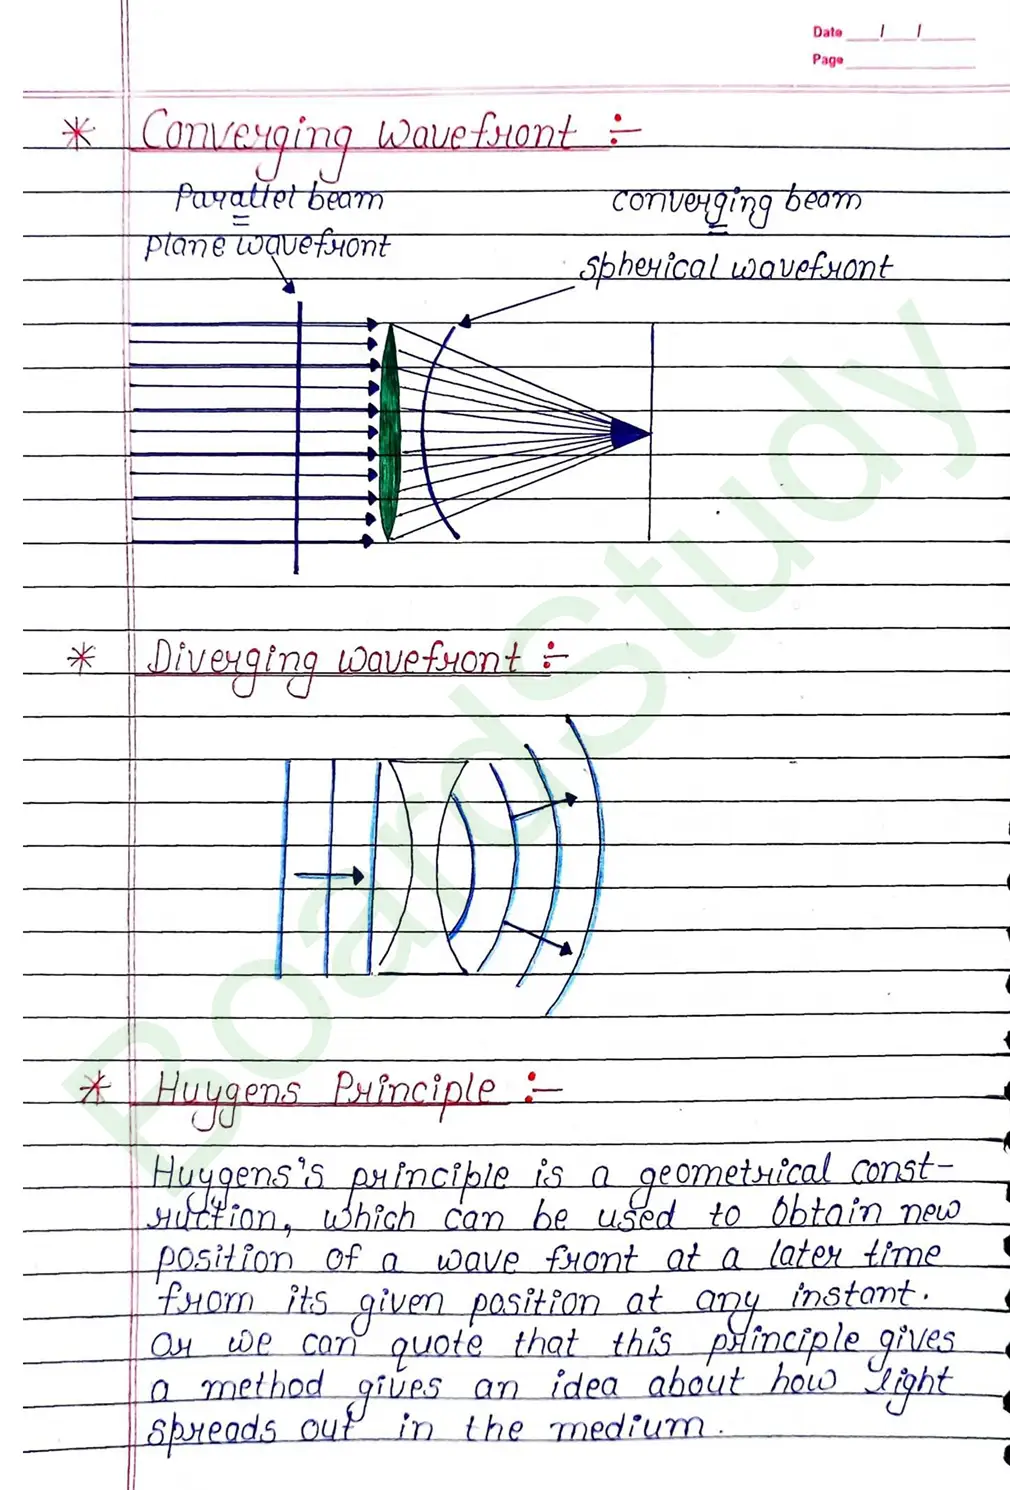 Date __/__/__
Page
* Converging wavefront :-
Parallel beam
=
plane wavefront
converging beam
=
spherical wavefront
* Diverging wavefront :-
* Huygens Principle :-
Huygens's principle is a geometrical const-
ruction, which can be used to obtain new
position of a wave front at a later time
from its given position at any instant.
or we can quote that this principle gives
a method gives an idea about how light
spreads out in the medium.
BoardStudy